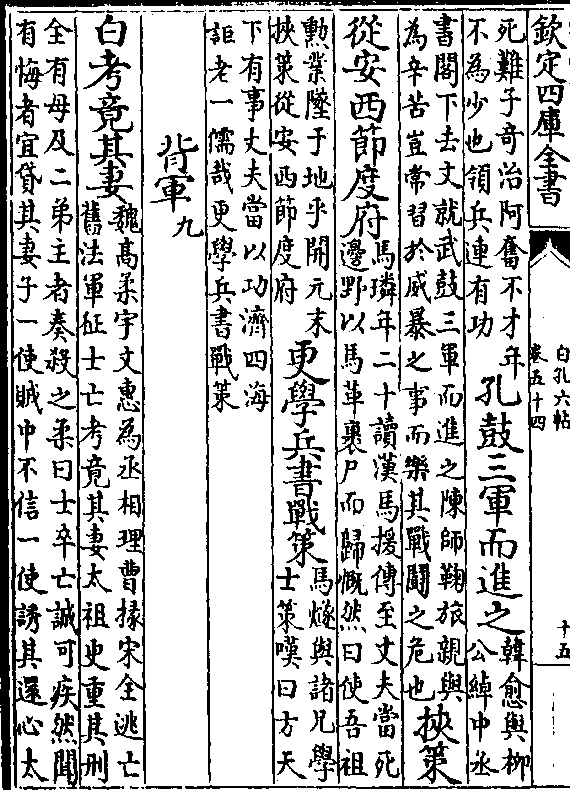 欽定四庫全書
白孔六帖
卷五十四
十五
死難子奇治阿奮不才年
不為少也領兵連有功
孔鼓三軍而進之
韓愈與柳
公綽中丞
書閣下去文就武鼓三軍而進之陳師鞠旅親與
為辛苦豈常習於威暴之事而樂其戰鬬之危也
挾策
從安西節度府
馬璘年二十讀漢馬援傳至丈夫當死
邊野以馬革裹尸而歸慨然曰使吾祖
勲業墜于地乎開元末
挾策從安西節度府
更學兵書戰策
馬燧與諸兄學
士策嘆曰方天
下有事丈夫當以功濟四海
詎老一儒哉更學兵書戰策
背軍九
白考竟其妻
魏高柔字文惠為丞相理曹掾宋全逃亡
舊法軍征士亡考竟其妻太祖史重其刑
全有母及二弟主者奏殺之柔曰士卒亡誠可疾然聞
有悔者宜貸其妻子一使賊中不信一使誘其還心太